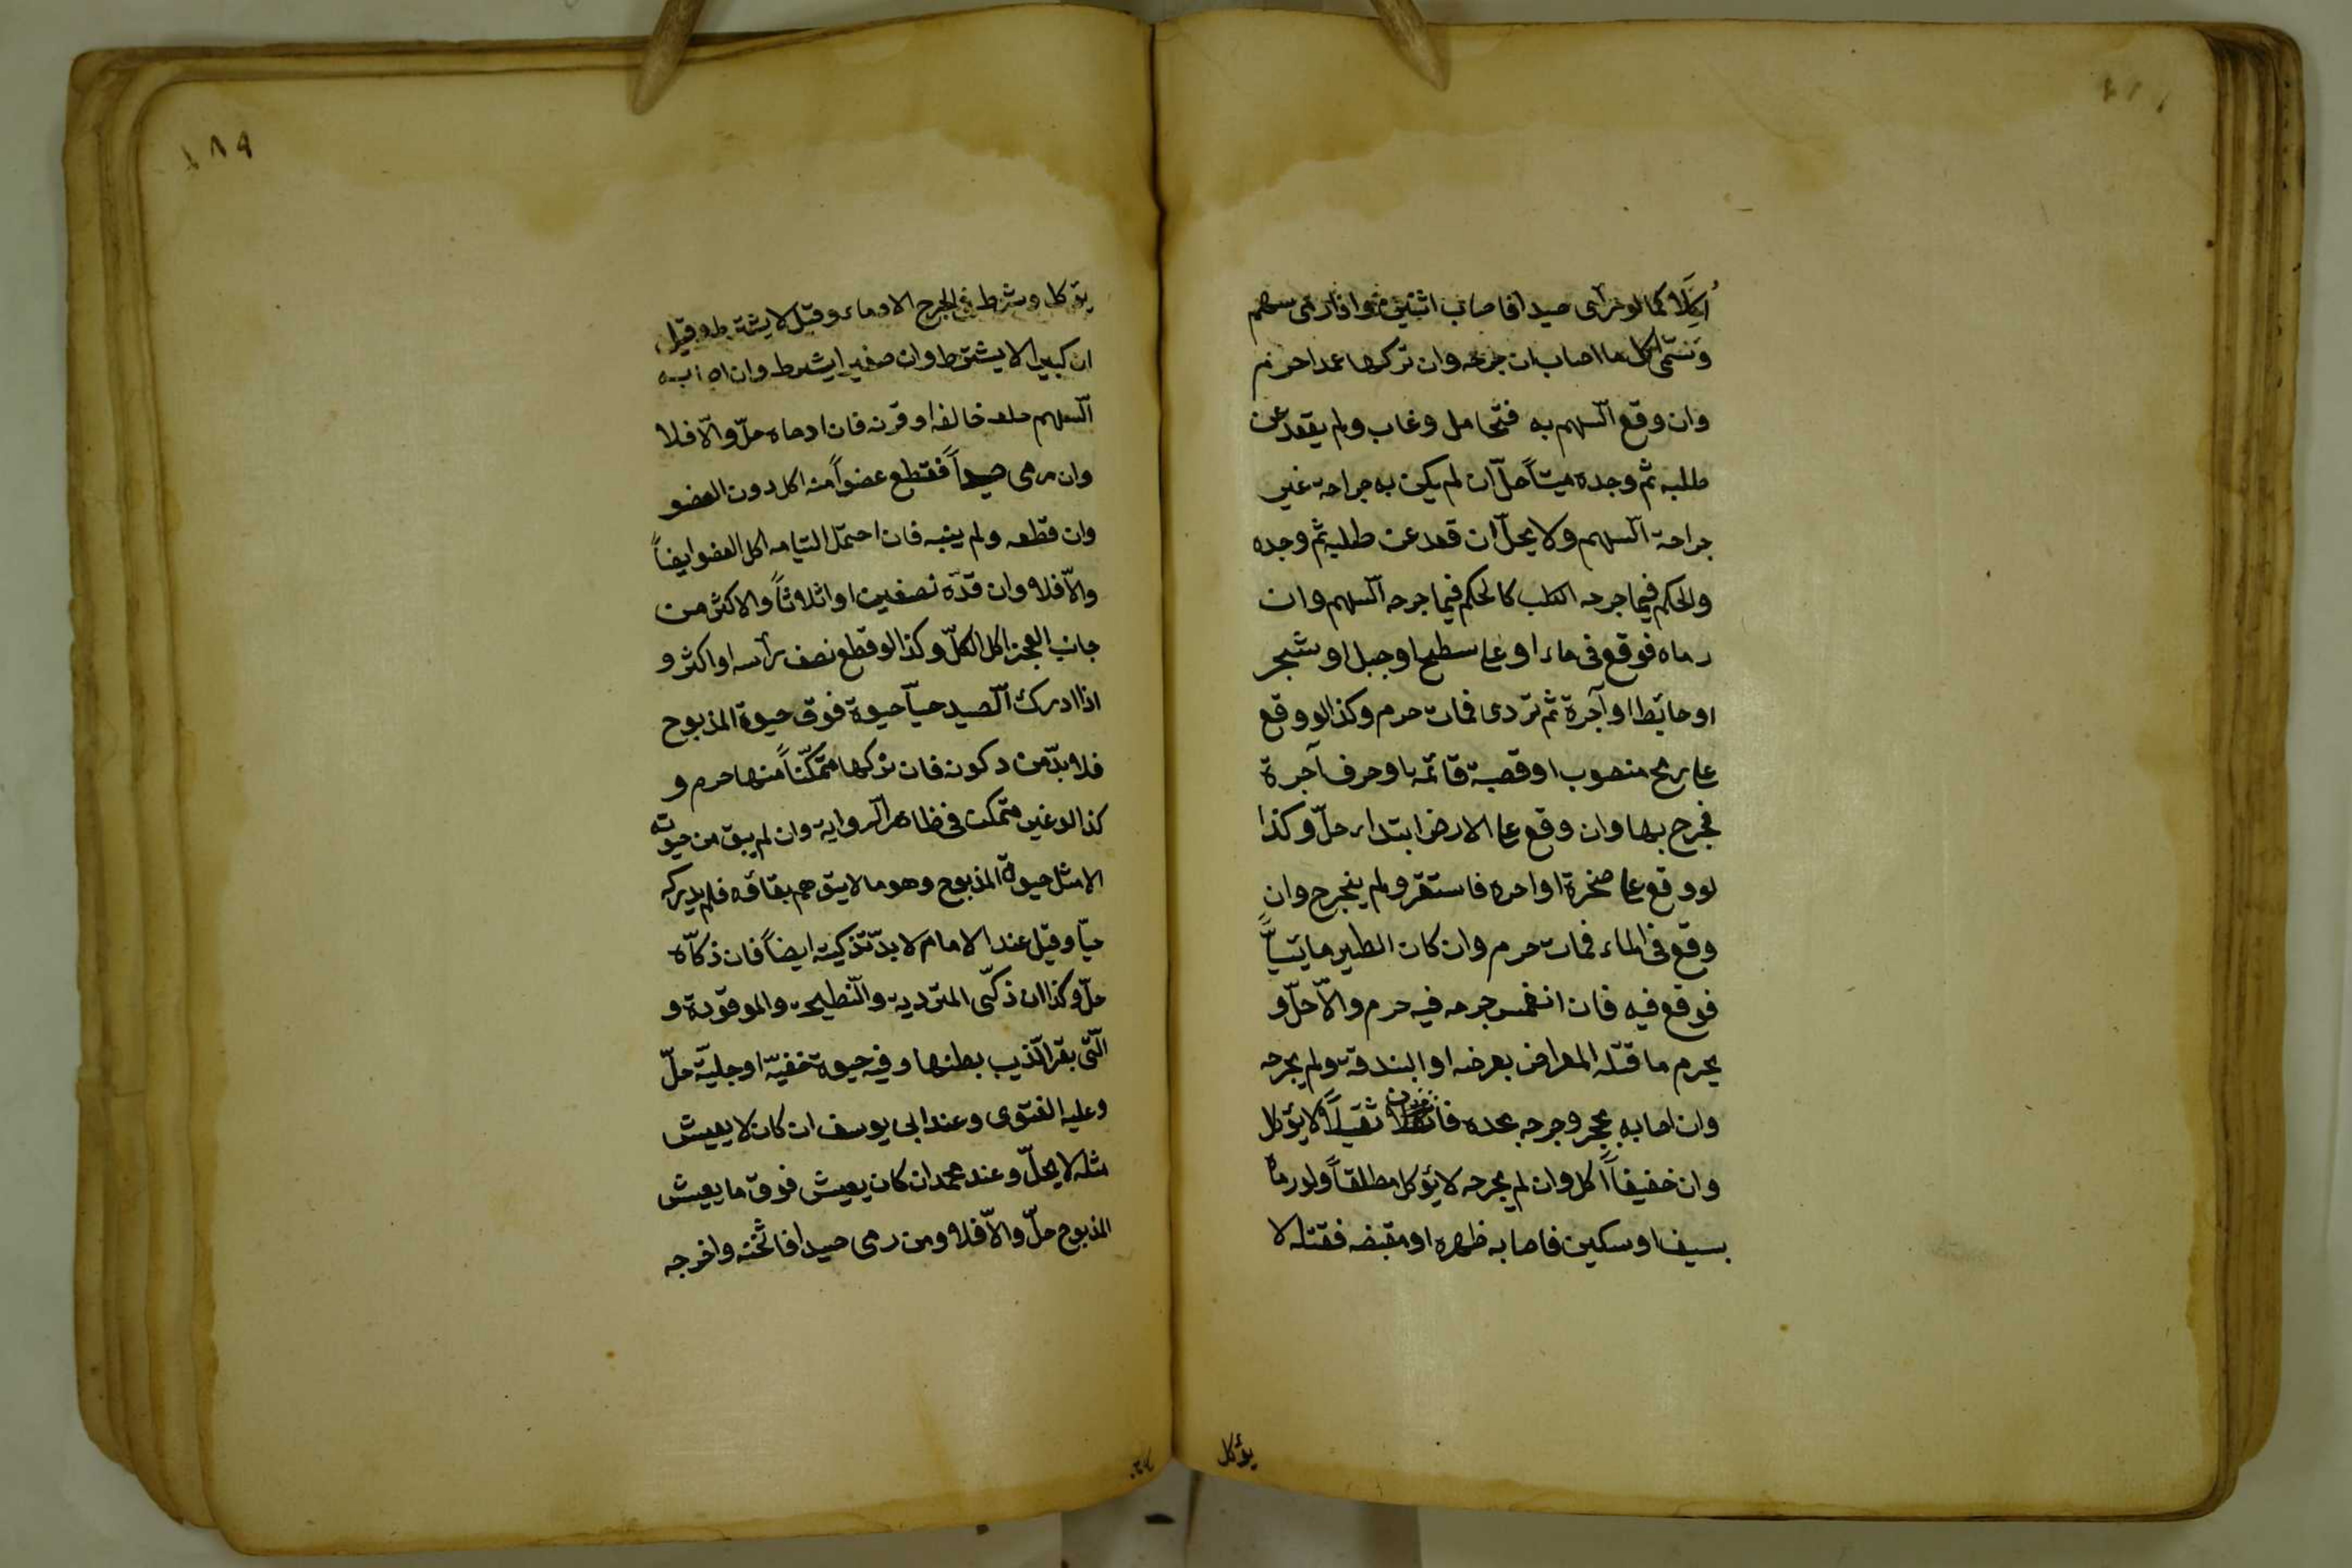 اكلا كما لو رمى صيدا فاصاب اثنين واذا رمى سهم
وسمى اكل ما اصاب ان جرحه وان تركها عمدا حرم
وان وقع السهم به فتحامل وغاب ولم يقعد عن
طلبه ثم وجده ميتاً حلّ ان لم يكن به جراحة غير
جراحة السهم ولا يحلّ ان قعد عن طلبه ثم وجده
والحكم فيما جرحه الكلب كالحكم فيما جرحه السهم وان
رماه فوقع فى ماء او على سطح او جبل او شجر
او حائط او آجرة ثم تردى فمات حرم وكذا لو وقع
على رمح منصوب او قصبة قائمة او حرف آجرة
فجرح بها وان وقع على الارض ابتداء حلّ وكذا
لو وقع على صخرة او اجره فاستقر ولم ينجرح وان
وقع فى الماء فمات حرم وان كان الطير مائيّاً
فوقع فيه فان انغمس جرحه فيه حرم والاّ حلّ و
يحرم ما قتله المعراض بعرضه او البندقة ولم يجرحه
وان اصابه بحجر وجرحه بحده فان ثقيلاً لا يؤكل
وان خفيفاً اكل وان لم يجرحه لا يؤكل مطلقاً ولو رماه
بسيف او سكين فاصابه ظهره او مقبضه فقتله لا
يؤكل
١٨٩
يؤكل وشرط فى الجرح الادماء وقيل لا يشترط وقيل
ان كبيرا لا يشترط وان صغيرا يشترط وان اصابه
السهم ظلفه او قرنه فان ادماه حلّ والاّ فلا
وان رمى صيداً فقطع عضواً منه اكل دون العضو
وان قطعه ولم يبنه فان احتمل التيامه اكل العضو ايضاً
والاّ فلا وان قدّه نصفين او اثلاثاً والاكثر من
جانب العجز اكل الكلّ وكذا لو قطع نصف رأسه او اكثر و
اذا ادرك الصيد حياً حيوة فوق حيوة المذبوح
فلا بدّ من ذكوته فان تركها متمكّناً منها حرم و
كذا لو غير متمكن فى ظاهر الرواية وان لم يبق من حيوته
الا مثل حيوة المذبوح وهو ما لا يتوهم بقاؤه فلم يدركه
حيّا وقيل عند الامام لا بدّ تذكيته ايضاً فان ذكاّه
حلّ وكذا ان ذكّى المتردية والنّطيحة والموقوذة و
الّتى بقر الذيب بطنها وفيه حيوة خفيّة او جليّة حلّ
وعليه الفتوى وعند ابى يوسف ان كان لا يعيش
مثله لا يحلّ وعند محمد ان كان يعيش فوق ما يعيش
المذبوح حلّ والاّ فلا ومن رمى صيدا فاثخنه واخرجه